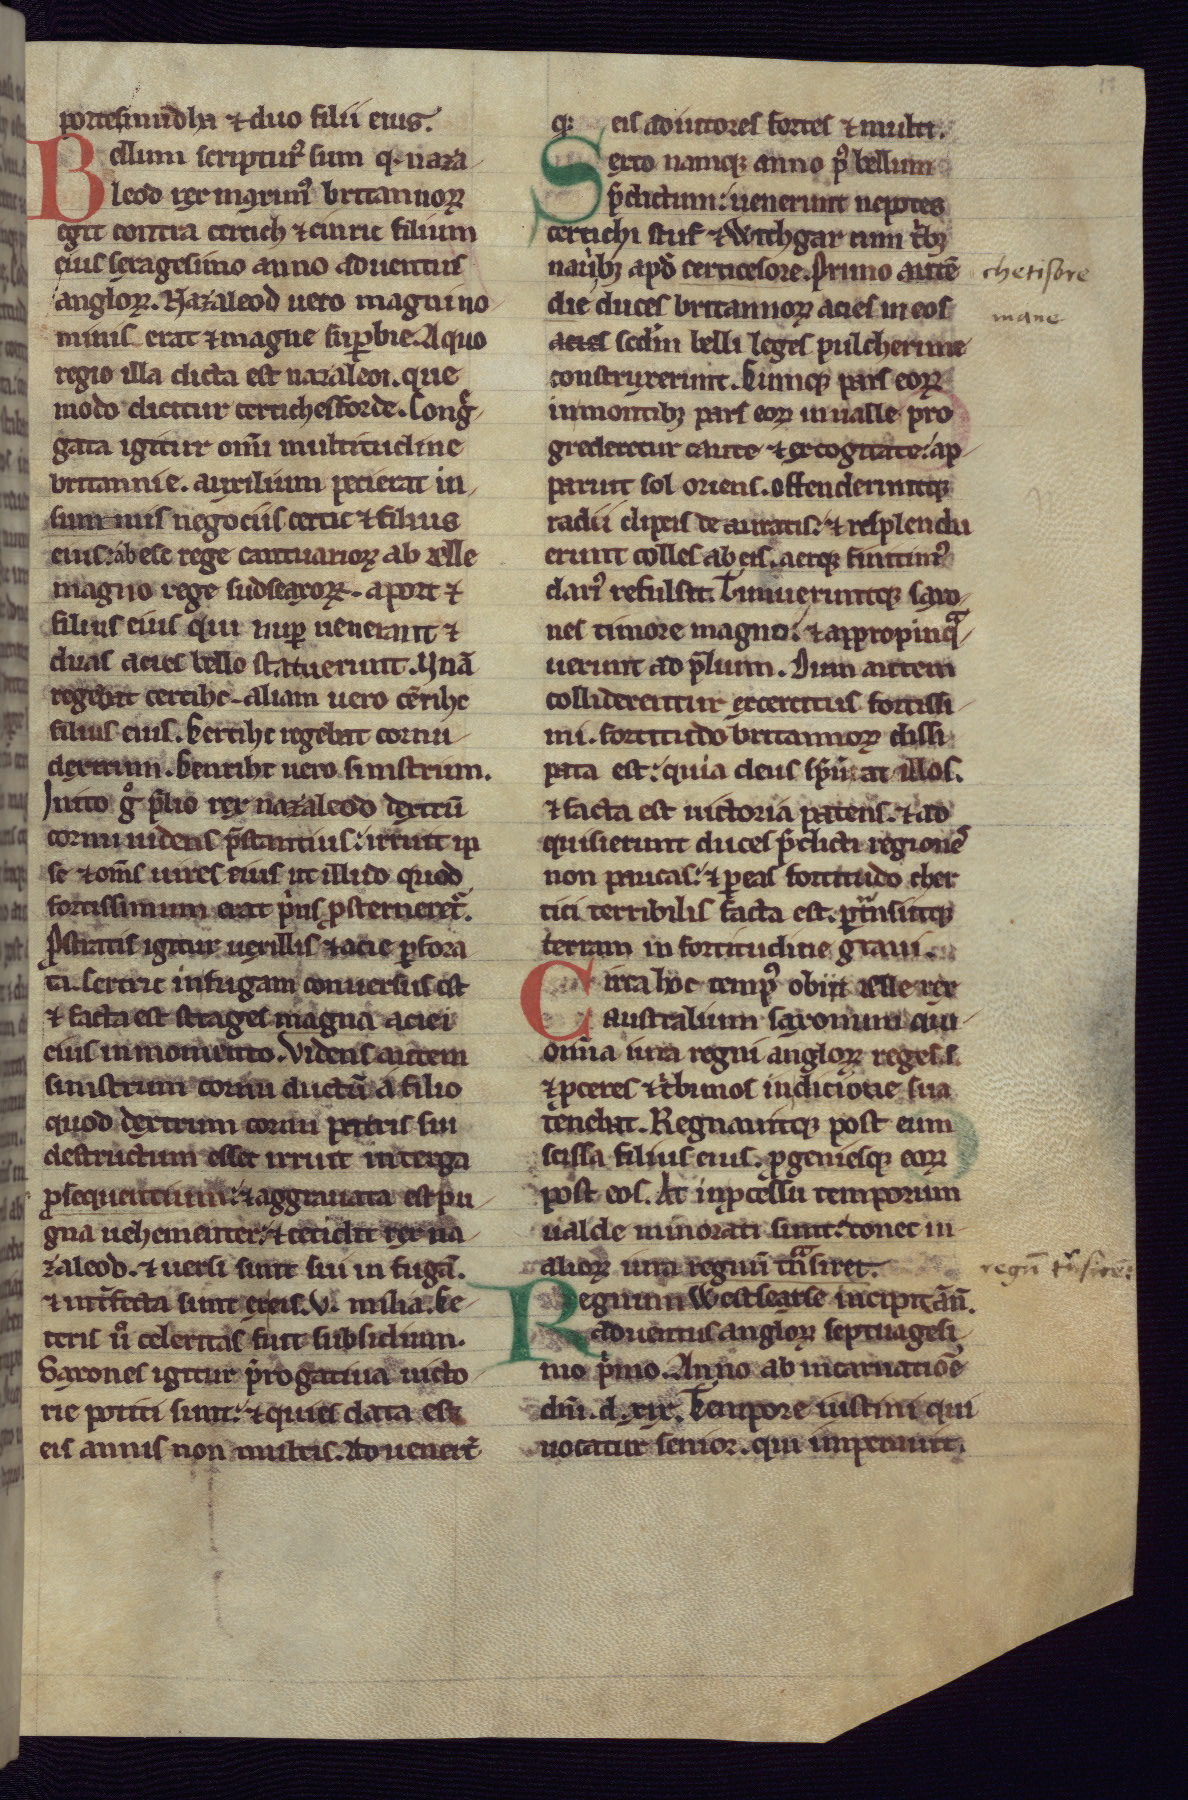 portesmudha ⁊ duo filii eius.
Bellum scripturꝰ sum q̄ naza
leod rex maximꝰ britannoꝝ
egit contra certich ⁊ cinric filium
eius sexagesimo anno aduentus
angloꝝ. Nazaleod uero magni no
minis erat ⁊ magne suꝑbie. A quo
regio illa dicta est nazaleoi. que
modo dicitur certichesforde. Congͥ
gata igitur om̄i multitudine
britannie. auxilium petierat in
summis negociis certic ⁊ filius
eius: ab esc rege cantuarioꝝ ab elle
magno rege sudsexoꝝ. a port ⁊
filiis eius qui nuꝑ uenerant ⁊
duas acies bello statuerunt. Vnā
regebat certihc. aliam uero cērihc
filius eius. Certihc regebat cornu
dextrum. kenriht uero sinistrum.
Inito gͦ p̄lio rex nazaleod dextrū
cornu uidens p̄stantius: irruit ip
se ⁊ om̄s uires eius ut illud quod
fortissimum erat pͥus ꝓsterneret᷒.
Ꝓstratis igitur uexillis ⁊ acie ꝑfora
ta. certric in fugam conuersus est
⁊ facta est strages magna aciei
eius in momento. Videns autem
sinistrum cornu ductū a filio
quod dextrum cornu patris sui
destructum esset irruit in terga
ꝓsequentium: ⁊ aggrauata est pu
gna uehementer: ⁊ cecidit rex na
zaleod. ⁊ uersi sunt sui in fugā.
⁊ int̄fecta sunt ex eis. V. milia. Ce
teris ū celeritas fuit subsidium.
Saxones igitur p̄rogatiua uicto
rie potiti sunt: ⁊ quies data est
eis annis non multis. Adueneꝝt
q: eis adiutores fortes ⁊ multi.
Sexto namqꝫ anno pꝰ bellum
p̄dictum: uenerunt nepotes
certichi stuf ⁊ Withgar cum tͥbꝫ
nauibꝫ apd̄ certicesore. Primo autē
die duces britannoꝝ acies in eos
acies scd̄m belli leges pulcherime
construxerunt. Cumqꝫ pars eoꝝ
in montibꝫ pars eoꝝ in ualle pro
grederetur caute ⁊ excogitate: ap
paruit sol oriens. offenderuntqꝫ
radii clipeis de auratis: ⁊ resplendu
erunt colles ab eis. aerqꝫ finitimꝰ
clarꝰ refulsit. Timueruntqꝫ saxo
nes timore magno: ⁊ appropinqͣ
uerunt ad p̄lium. Dum autem
colliderentur exercitus fortissi
mi. fortitudo britannoꝝ dissi
pata est: quia deus sp̄uat illos.
⁊ facta est uictoria patens. ⁊ ad
quisierunt duces p̄dicti regiones
non paucas: ⁊ ꝑ eas fortitudo cher
tici terribilis facta est. ꝑtͣnsiitqꝫ
terram in fortitudine graui.
Circa hoc tempꝰ obiit elle rex
australium saxonum qui
om̄ia iura regni angloꝝ reges s.
⁊ ꝓceres ⁊ tͥbunos in dicione sua
tenebat. Regnauitqꝫ post eum
scissa filius eius. ꝓgeniesqꝫ eoꝝ
post eos. At in ꝓcessu temporum
ualde minorati sunt: donec in
alioꝝ iura regnū tͣnsiret.
Regnum Westsexe incipit āñ.
aduentus angloꝝ septuagesi
mo pͥmo. Anno ab incarnatiōe
dn̄i. d. xix. Tempore iustini qui
uocatur senior. qui imperauit.
chetisore
mane
regn̄ tͣsiret